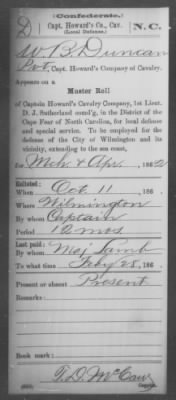 (Confederate.)
D Capt. Howard's Co., Cav. N.C.
(Local Defense.)
W. B. Duncan
Pvt, Capt. Howard's Company of Cavalry.
Appears on a
Muster Roll
of Captain Howard's Cavalry Company, 1st Lieut.
D. J. Rutherford comd'g, in the District of the
Cape Fear of North Carolina, for local defense
and special service. To be employed for the
defense of the City of Wilmington and its
vicinity, extending to the sea coast,
for Mch & Apr, 1862
Enlisted:
When Oct. 11, 186 .
Where Wilmington
By whom Captain
Period 12 mos
Last paid:
By whom Maj Lamb
To what time Feby 28, 186 .
Present or absent Present
Remarks:
Book mark:
Copyist.